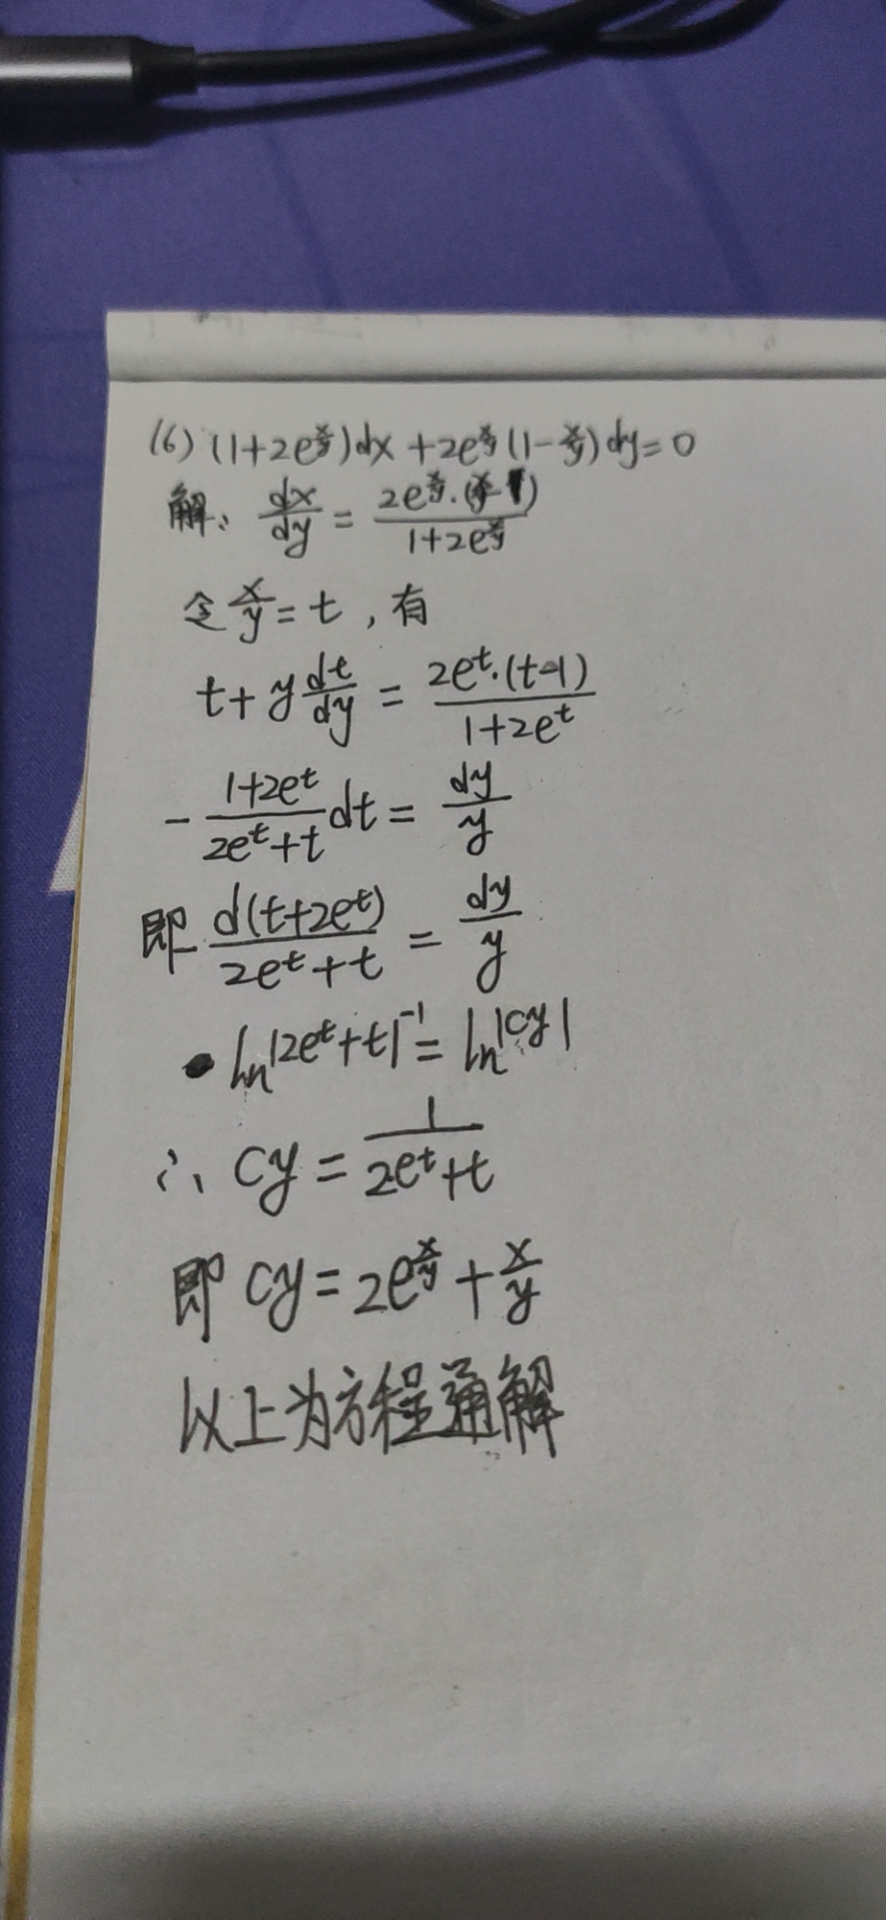 (6) (1+2e^{x/y})dx+2e^{x/y}(1-x/y)dy=0
解: dx/dy = 2e^{x/y}·(x/y-1)/(1+2e^{x/y})
令x/y=t,有
t+y dt/dy = 2e^t·(t-1)/(1+2e^t)
-(1+2e^t)/(2e^t+t) dt = dy/y
即-d(t+2e^t)/(2e^t+t) = dy/y
ln|2e^t+t|^{-1} = ln|cy|
∴ cy = 1/(2e^t+t)
即 cy=2e^{x/y}+x/y
以上为方程通解